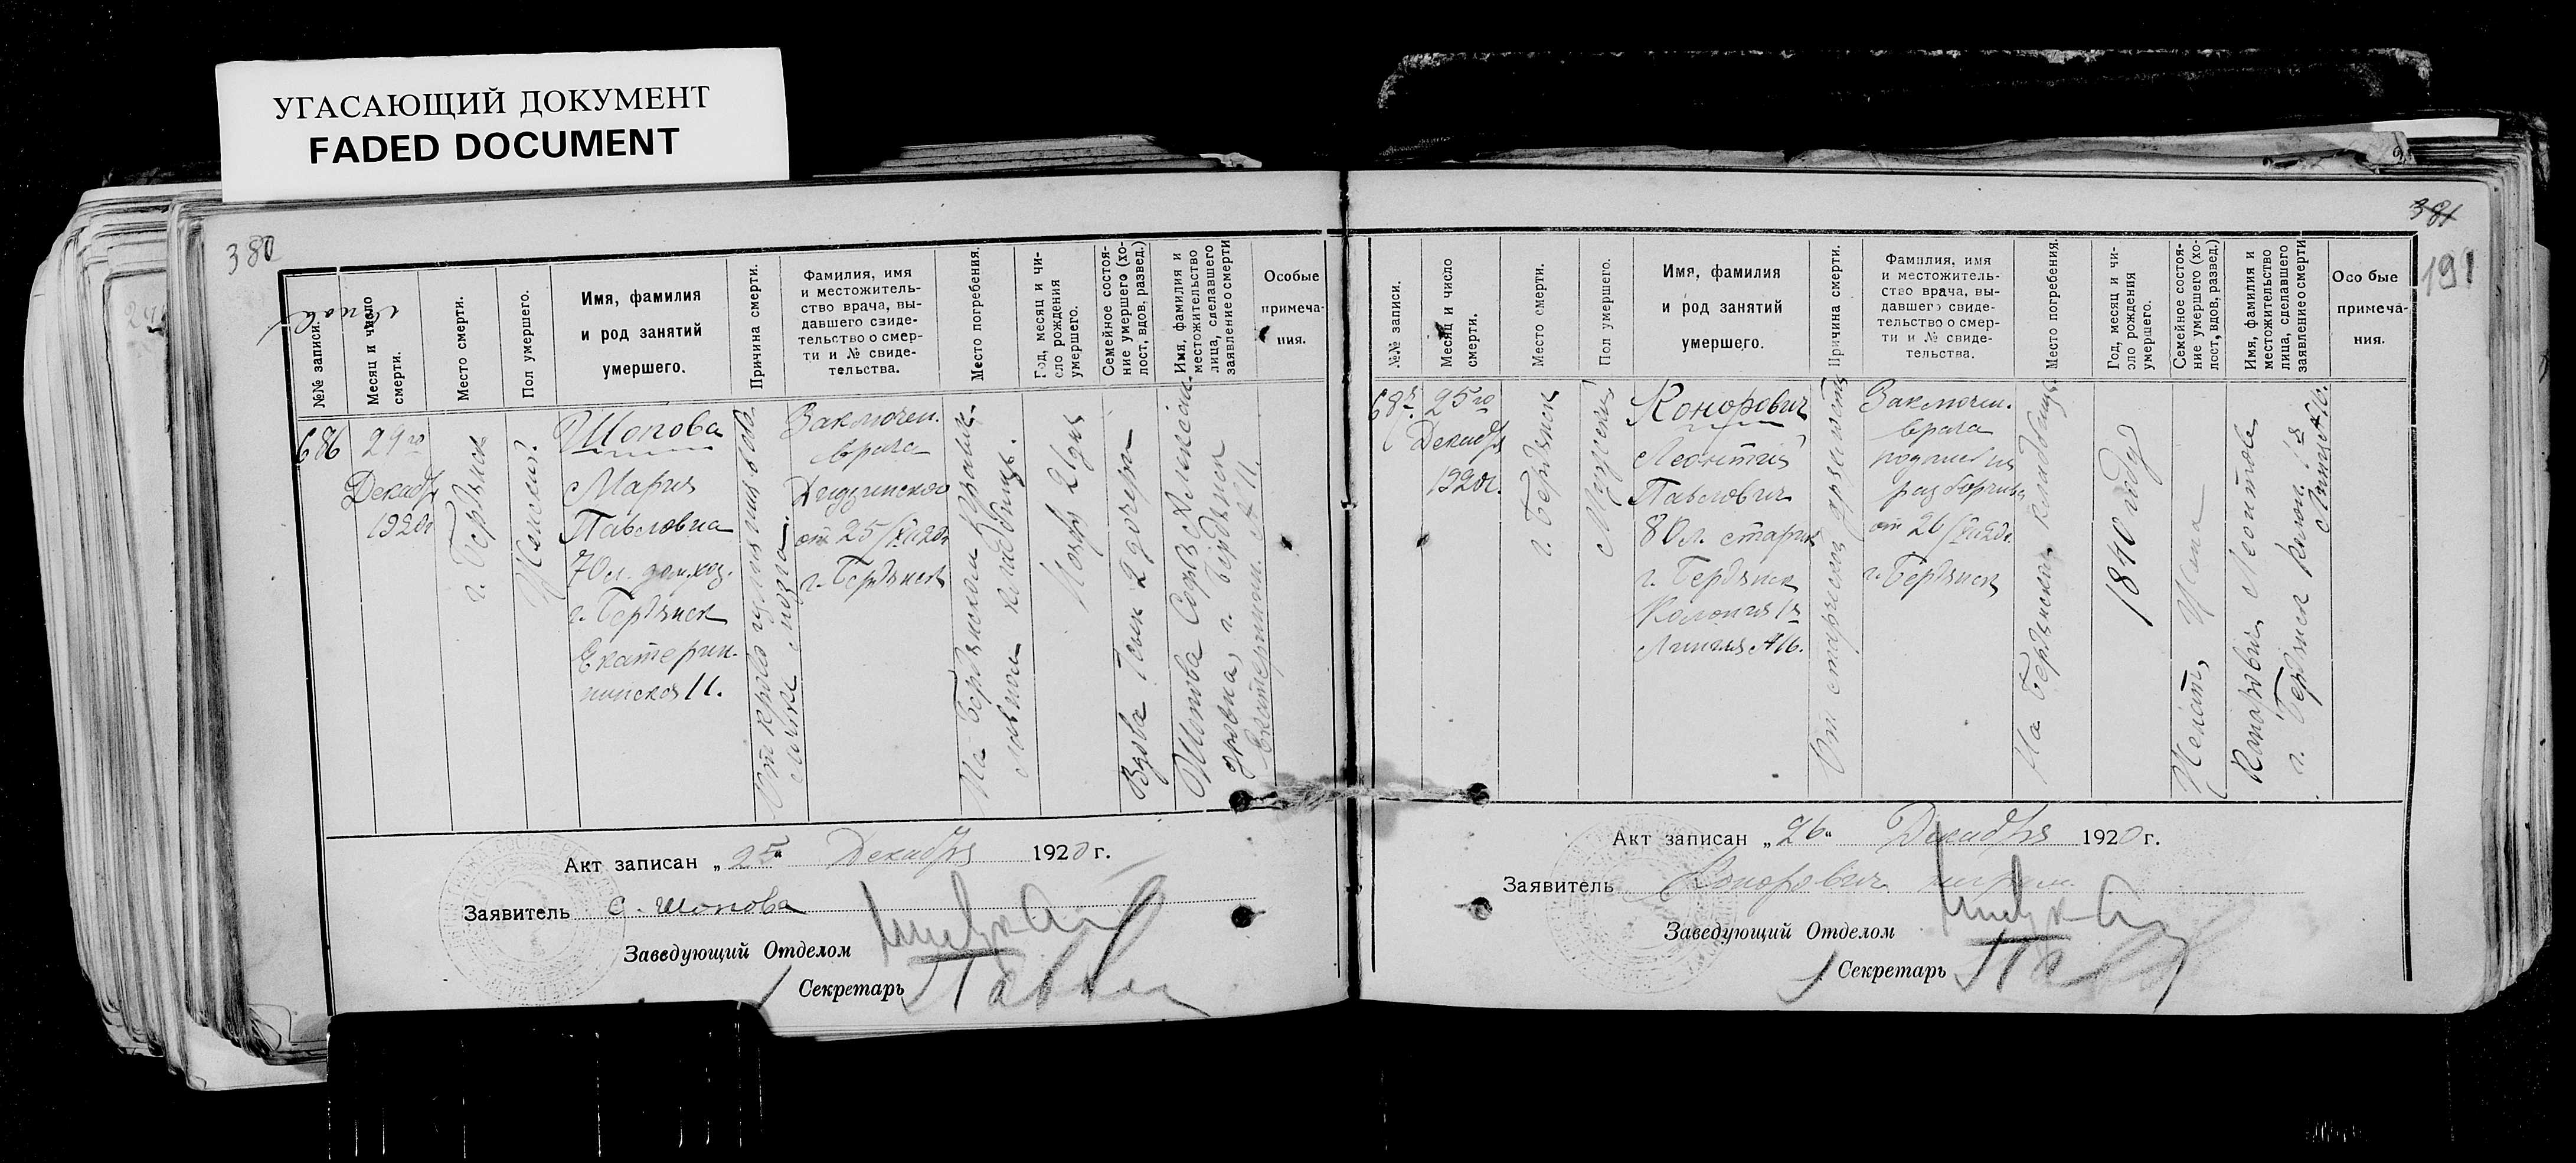 УГАСАЮЩИЙ ДОКУМЕНТ
FADED DOCUMENT
380
№№ записи.
Месяц и число
смерти.
Место смерти.
Пол умершего.
Имя, фамилия
и род занятий
умершего.
Причина смерти.
Фамилия, имя
и местожитель-
ство врача, вы-
давшего свиде-
тельство о смер-
ти и № свиде-
тельства.
Место погребения.
Год, месяц и чи-
сло рождения
умершего.
Семейное состоя-
ние умершего (хо-
лост, вдов. развед.)
Имя, фамилия и
местожительство
лица, сделавшего
заявление о смерти
Особые
примеча-
ния.
686
29го
Декабр
1920г
г. Бердянск
Женский
Шопова
Мария
Павловна
70 л. дом.хоз.
г. Бердянск
Екатерин-
нинская 11.
Заключен.
врача
от 25/XII 20г
г. Бердянск
На Бердянском
кладбище.
Ноябр 21 дня
Вдова 2 дочери
Шопова
г. Бердянск
Акт записан „25“ Декабря 1920 г.
Заявитель С. Шопова
Заведующий Отделом
Секретарь
381
191
№№ записи.
Месяц и число
смерти.
Место смерти.
Пол умершего.
Имя, фамилия
и род занятий
умершего.
Причина смерти.
Фамилия, имя
и местожитель-
ство врача, вы-
давшего свиде-
тельство о смер-
ти и № свиде-
тельства.
Место погребения.
Год, месяц и чи-
сло рождения
умершего.
Семейное состоя-
ние умершего (хо-
лост, вдов, развед.)
Имя, фамилия и
местожительство
лица, сделавшего
заявление о смерти
Особые
примеча-
ния.
25го
Декабр
1920г.
г. Бердянск
Мужской
Конорович
Леонтий
Павлович
80 л. старик
г. Бердянск
Колония 1я
Линия № 16.
От старческой дряхлости
Заключен.
врача
от 26/XII 20г.
г. Бердянск
На Бердянском кладбище.
1840 году
Женат, Жена
Леонтова
г. Бердянск Колон. 1я
Линия № 16.
Акт записан „26“ Декабря 1920 г.
Заявитель Конорович
Заведующий Отделом
Секретарь